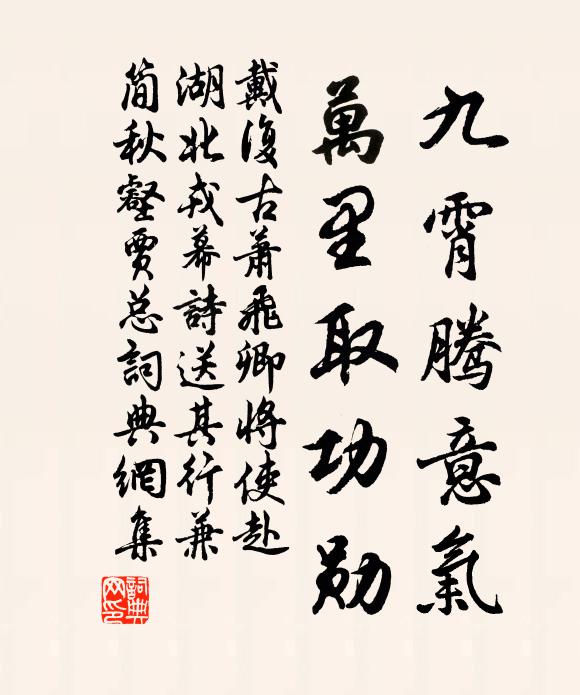 九霄騰意氣
萬里取功勛
戴復古蕭飛卿將使赴
湖北戎幕詩送其行兼
簡秋壑賈总詞典網集
詞典网印